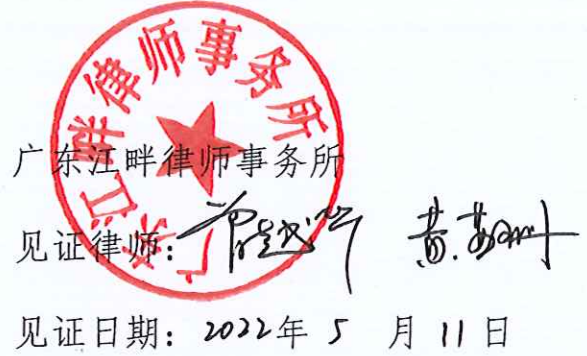 广东江畔律师事务所
广东江畔律师事务所
见证律师:
见证日期: 2022年 5 月 11 日